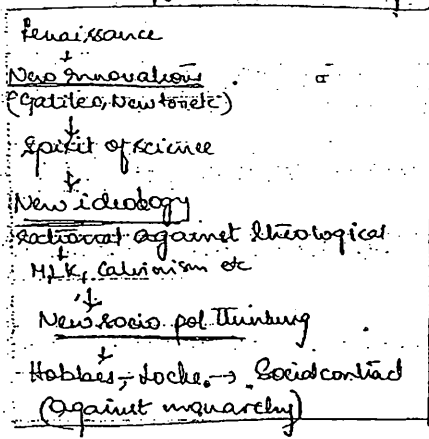 Renaissance
↓
New Innovations
(Galileo, Newton etc)
↓
Spirit of science
↓
New ideology
rational against theological
↓
MLK, Calvinism etc
↓
New socio pol thinking
↓
Hobbes, Locke → Social contract
(Against monarchy)